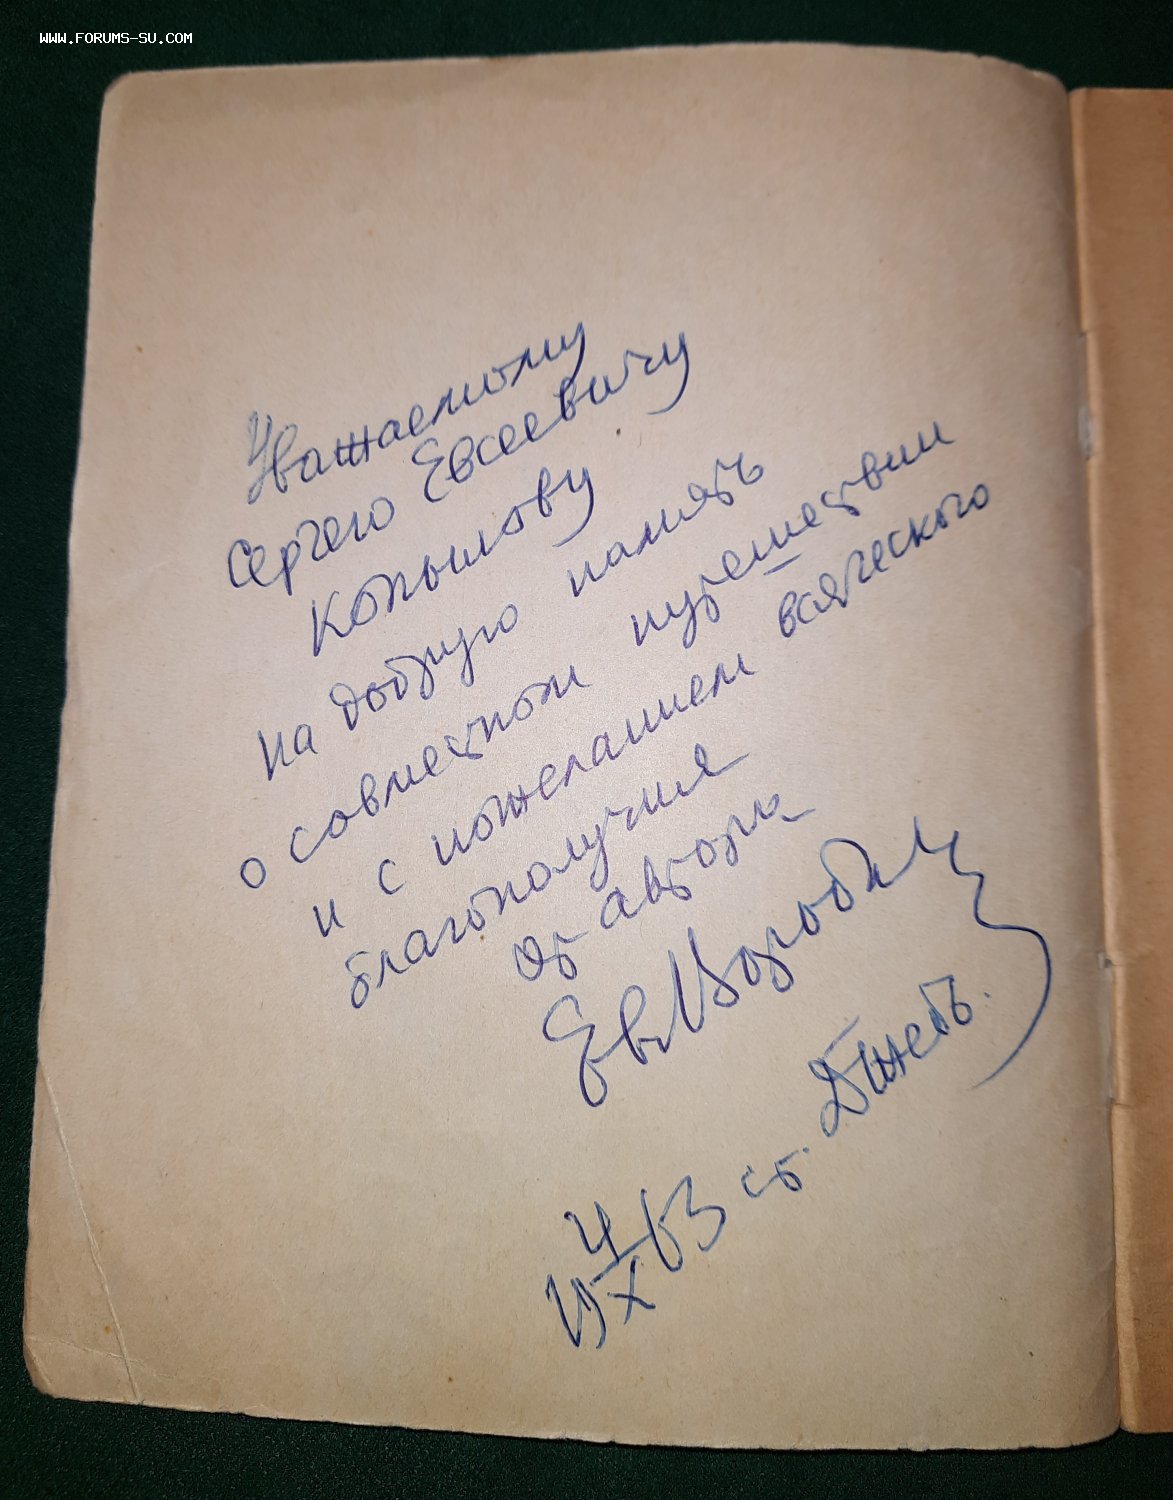 WWW.FORUMS-SU.COM
Уважаемому
Сергею Евсеевичу
Копылову
на добрую память
о совместном путешествии
и с пожеланием всяческого
благополучия
от автора
Ев Воробьев
4/X 63 ст.